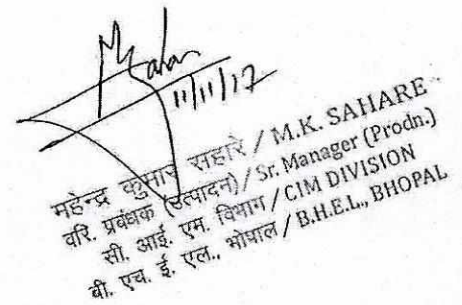 M Sahare
11/11/17
महेन्द्र कुमार सहारे / M.K. SAHARE
वरि. प्रबंधक (उत्पादन) / Sr. Manager (Prodn.)
सी. आई. एम. विभाग / CIM DIVISION
बी. एच. ई. एल., भोपाल / B.H.E.L., BHOPAL